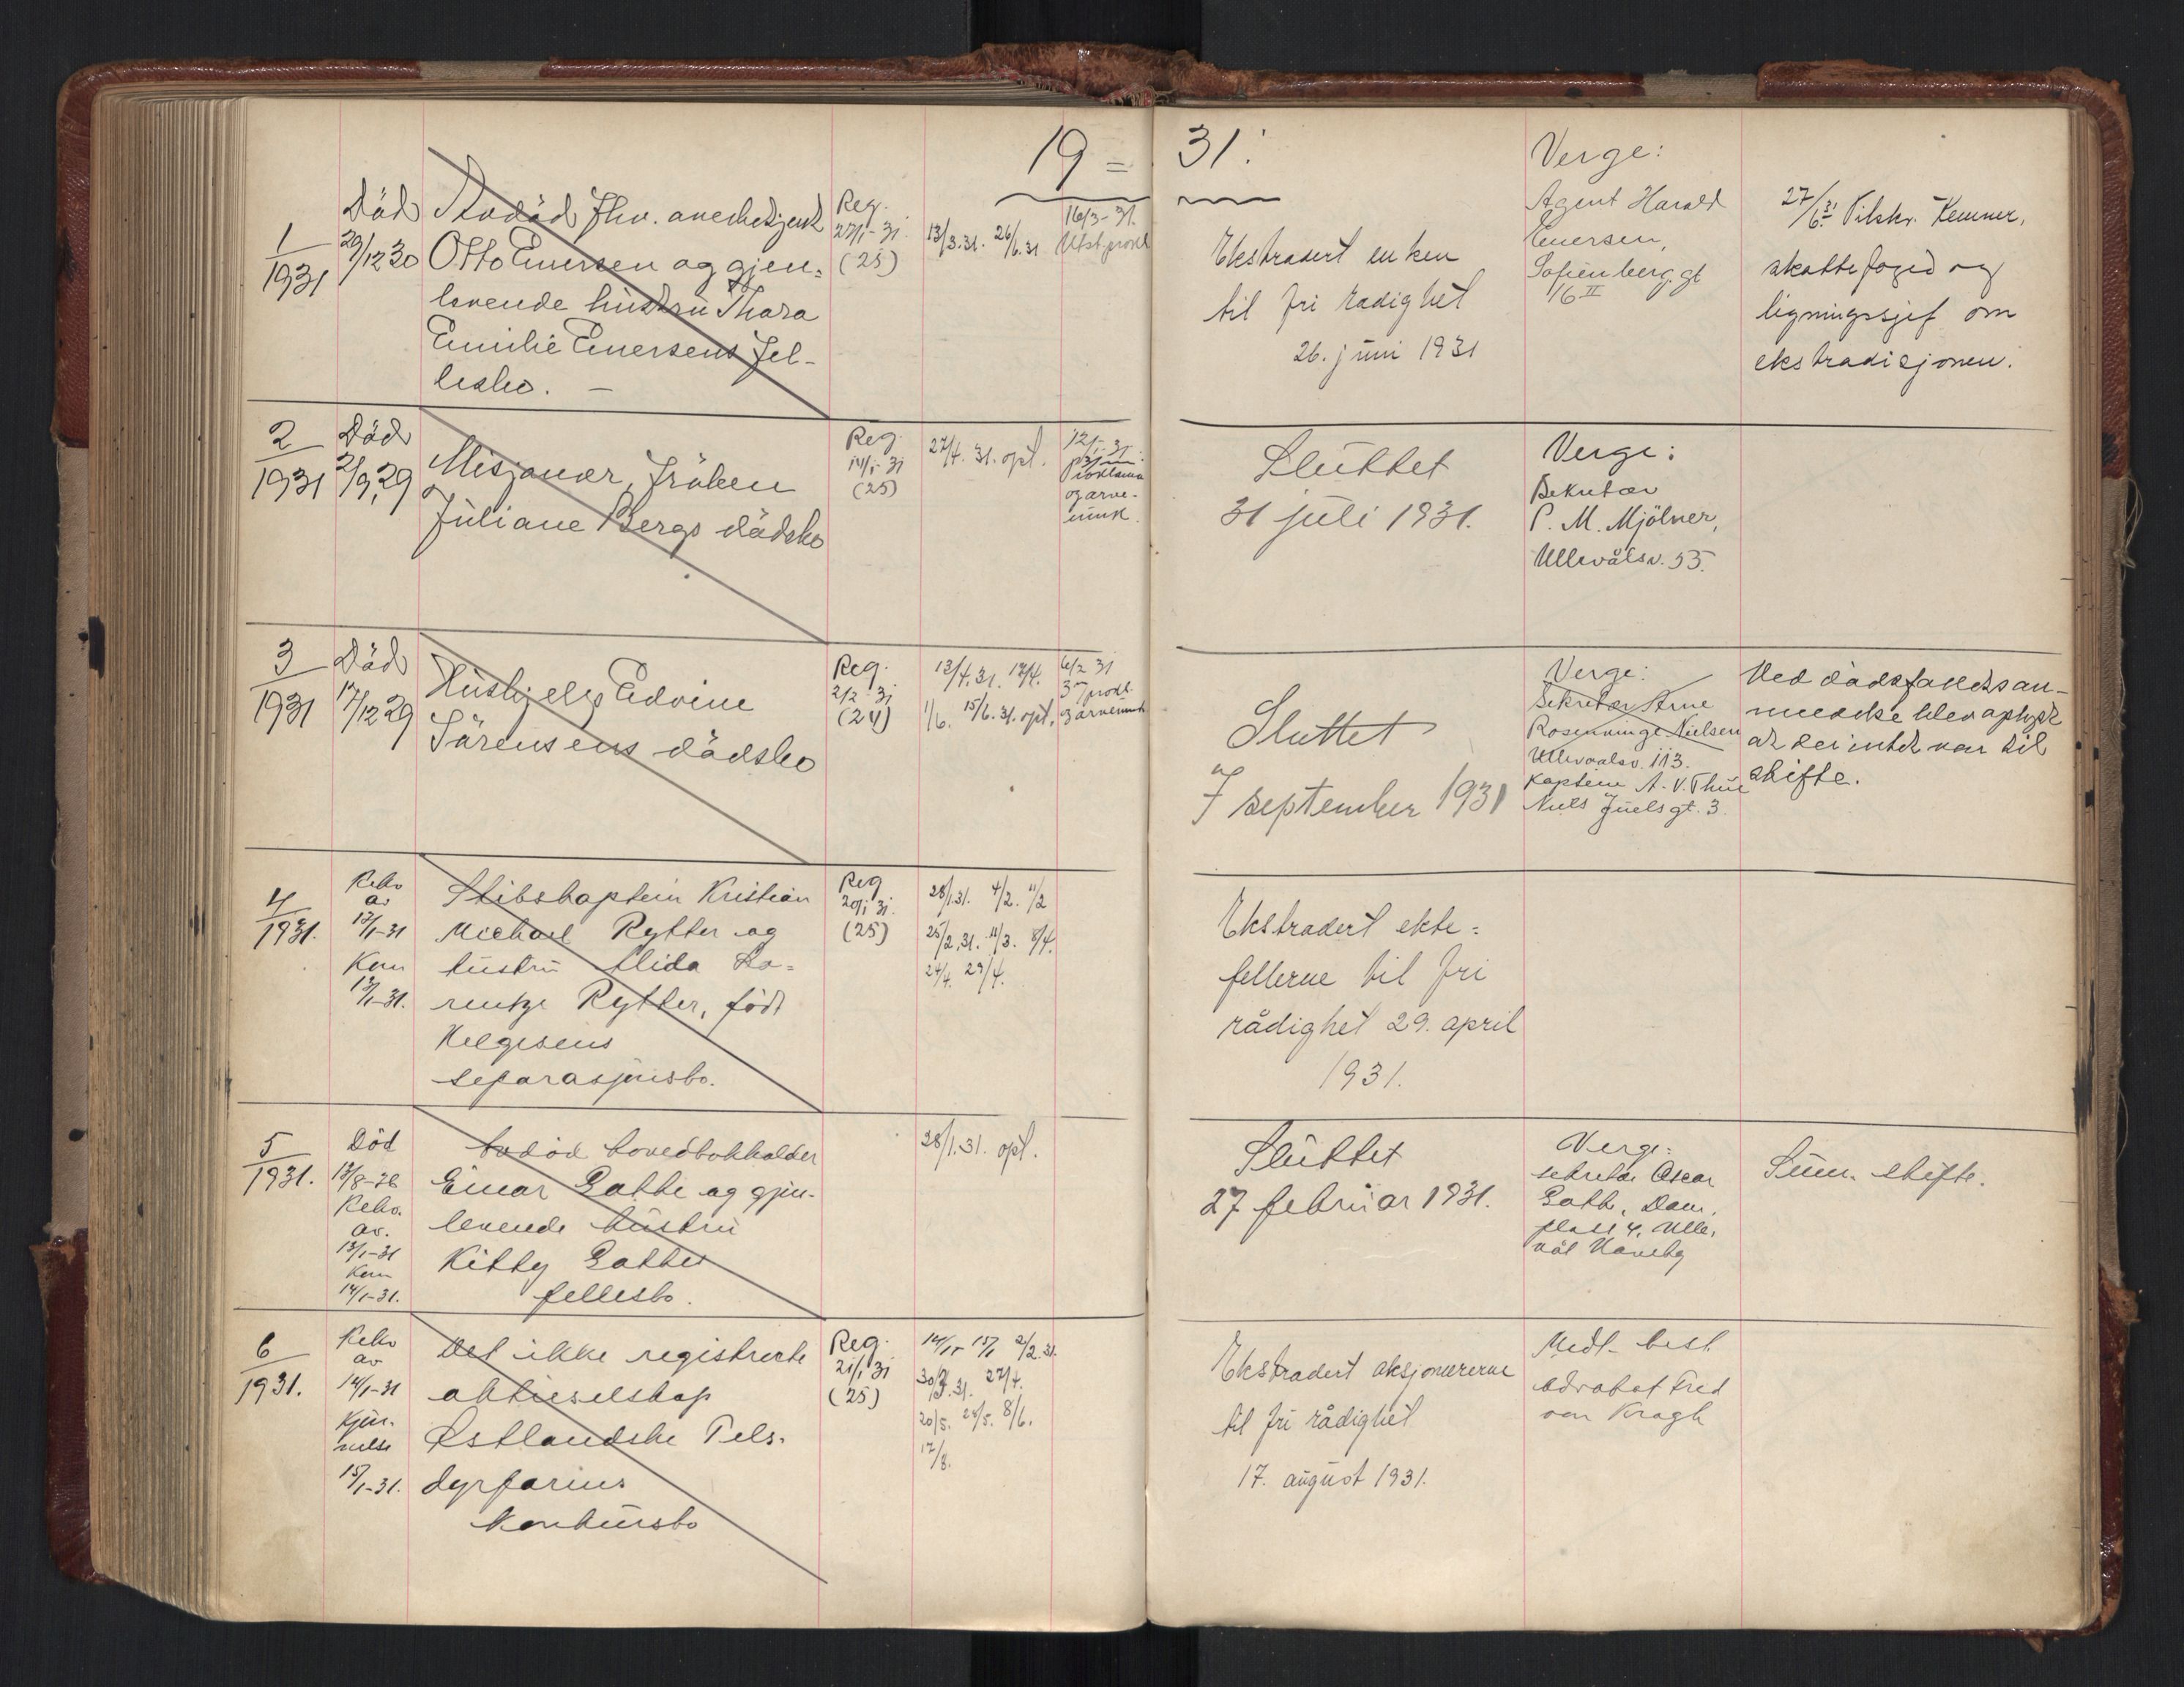 19 = 31.
1
1931
Död
29/12 30
Avdöd fhv.
Otto Emersen og gjen-
levende hustru Thora
Emilie Emersens fel-
lesbo. —
Reg.
27/1-31.
(25)
13/3.31. 26/6.31
16/3-31.
Utst. prokl
Ekstradert enken
til fri rådighet
26. juni 1931
Verge:
Agent Harald
Emersen,
Sofienberg.gt
16 II
27/6.31 Tilskr. Kemner,
skattefoged og
ligningssjef om
ekstradisjonen.
2
1931
Död
2/9.29
Misjonær, fröken
Juliane Bergs dödsbo
Reg.
14/1-31
(25)
27/4.31. opt.
12/1-31.
Proklama
og arve-
innk.
Sluttet
31 juli 1931.
Verge:
Sekretær
P. M. Mjölner,
Ullevålsv. 55.
3
1931
Död
17/12 29
Hushjelp Edvine
Sörensens dödsbo
Reg.
2/2-31
(24)
13/4.31. 17/4.
1/6. 15/6.31. opt.
6/2 31
prokl.
og arveinnk
Sluttet
7 september 1931
Verge:
Sekretær Arne
Rosenvinge Nielsen
Ullevaalsv. 113.
Kaptein A. V. Thue
Niels Juels gt. 3.
Ved dödsfaldsan-
meldelse blev oplyst
at der intet var til
skifte.
4
1931.
Rekv
av
17/1-31
Kon
19/1-31.
Skibskaptein Kristian
Michael Rytter og
hustru Alida Lo-
rentze Rytter, född
Helgesens
separasjonsbo.
Reg
20/1 31.
(25)
28/1.31. 4/2. 11/2
25/2.31. 11/3. 8/4.
24/4. 29/4.
Ekstradert ekte-
fellerne til fri
rådighet 29. april
1931.
5
1931.
Död
17/8-26
Rekv.
av.
13/1-31
Kon
14/1-31.
Avdöd hovedbokholder
Einar Gathe og gjen-
levende hustru
Kitty Gathes
fellesbo.
28/1.31. opt.
Sluttet
27 februar 1931.
Verge:
sekretær Oscar
Gathe, Dam-
plass 4, Ulle-
vål Haveby
Sum. skifte.
6
1931.
Rekv
av
14/1-31
Kjen-
nelse
15/1-31.
Det ikke registrerte
aktieselskap
Östlandske Pels-
dyrfarms
konkursbo
Reg.
21/1 31
(25)
14/1 15/1 2/2.31.
30/3.31. 27/4.
20/5. 28/5. 8/6.
17/8.
Ekstradert aksjonærerne
til fri rådighet
17. august 1931.
Midl. best.
advokat Fred
von Krogh